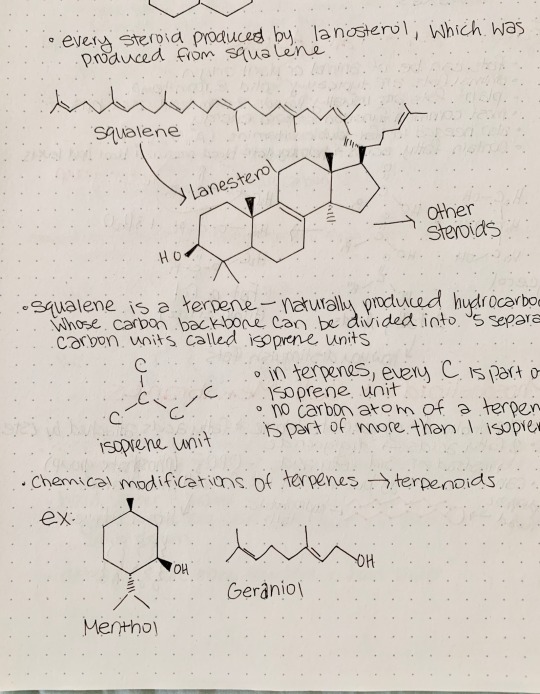 • every steroid produced by lanosterol, which was
produced from squalene
squalene
Lanesterol
HO
→ other
steroids
• squalene is a terpene – naturally produced hydrocarbo
whose carbon backbone can be divided into 5 separa
carbon units called isoprene units
C
C C C C
isoprene unit
• in terpenes, every C is part o
isoprene unit
• no carbon atom of a terpen
is part of more than 1 isopre
• Chemical modifications of terpenes → terpenoids
ex:
OH
Menthol
OH
Geraniol